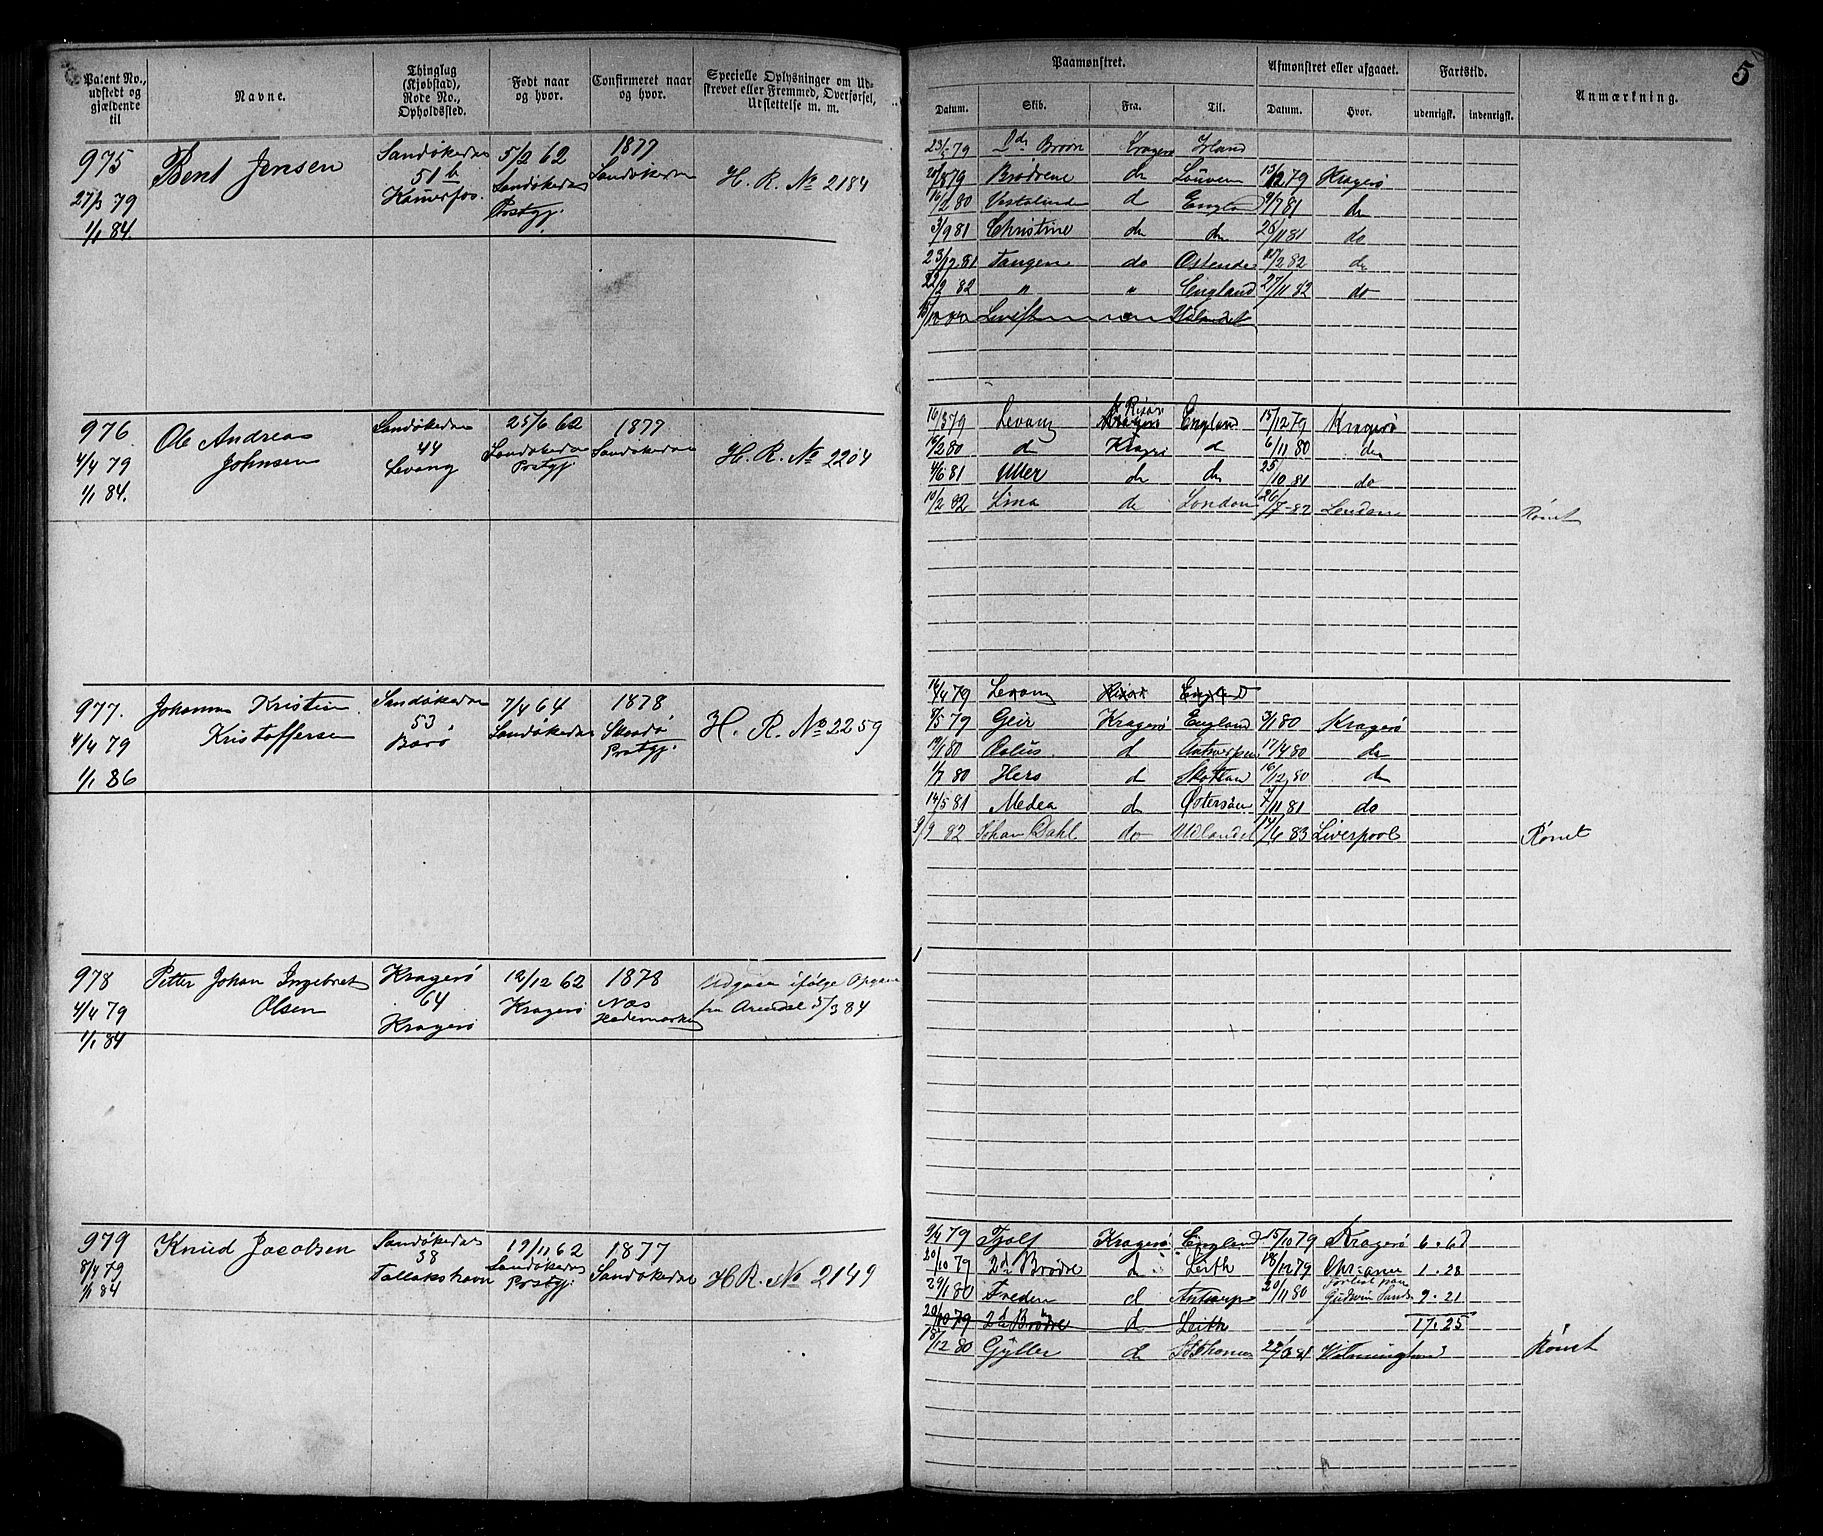 5
Patent No., udstedt og gjældende til
Navne.
Thinglag (Kjøbstad), Rode No., Opholdssted.
Født naar og hvor.
Confirmeret naar og hvor.
Specielle Oplysninger om Udstrevet eller Fremmed, Overførsel, Udslettelse m. m.
Paamønstret.
Afmønstret eller afgaaet.
Fartstid.
Anmærkning.
Datum. Skib. Fra. Til. Datum. Hvor. udenrigsk. indenrigsk.
975
27/3 79
1/1 84.
Bent Jensen
Sandøkedal
51 b
5/2 62
Sandøkedal
Prstgj.
1877
Sandøkedal
H. R. No 2184
Brødre Kragerø Irland
Brødrene do 13/12 79 Kragerø
16/2 80 d Engla 9/7 81 do
3/9 81 Christine do do 26/11 81 do
23/12 81 Tangen do Ostende 17/2 82 do
22/2 82 " " England 27/11 82 do
Udlandet
976
4/4 79
1/1 84.
Ole Andreas
Johnsen
Sandøkedal
44
Levang
25/6 62
Sandøkedal
Prstgj
1877
Sandøkedal
H. R. No 2204
16/3 79 Levang Risør England 15/12 79 Kragerø
16/2 80 d Kragerø d 6/11 80 do
4/6 81 Uller do do 25/10 81 do
10/2 82 Lina do London 26/8 82 London Rømt
977.
4/4 79
1/1 86
Johannes Kristian
Kristoffersen
Sandøkedal
53
Barø
7/4 64
Sandøkedal
1878
Skaadø
Prstgj.
H. R. No 2259
16/4 79 Levang Risør England
9/5 79 Geir Kragerø England 3/1 80 Kragerø
19/1 80 d Antwerpen 17/4 80 do
1/7 80 Hers d Skotlan 16/12 80 do
14/5 81 Medea do Østersøen 7/11 81 do
9/9 82 Johan Dahl do Udlandet 14/6 83 Liverpool Rømt
978
4/4 79
1/1 84
Petter Johan Ingebret
Olsen
Kragerø
64
Kragerø
12/12 62
Kragerø
1878
Næs
Hedemarken
Udgaar ifølge Opgave
fra Arendal 5/3 84
979
8/4 79
1/1 84
Knud Jacobsen
Sandøkedal
38
Tallakshavn
19/11 62
Sandøkedal
Prstgj.
1877
Sandøkedal
H R. No 2149
9/4 79 Tjalf Kragerø England 15/10 79 Kragerø 6. 6
20/10 79 2de Brødre d Leith 18/12 79 1. 28
29/1 80 Freden d Antwerp 20/11 80 9. 21
20/10 79 2de Brødre d Leith 17. 25
18/12 80 Gyller do St Thomas Wilmington Rømt